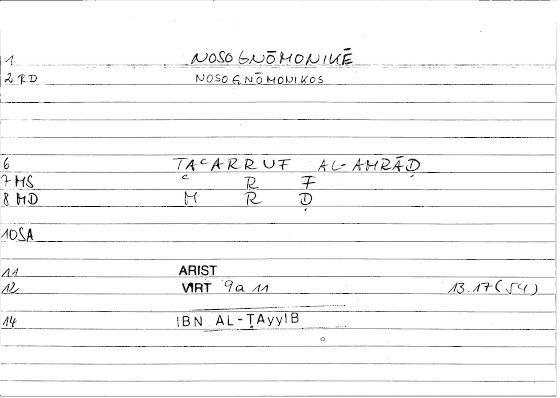 1 NOSOGNŌMONIKĒ
2 RD NOSOGNŌMONIKOS
6 TAᶜARRUF AL-AMRĀḌ
7 MS ᶜ R F
8 MD M R Ḍ
10 SA
11 ARIST
12 VIRT 9a 11 13.17 (54)
14 IBN AL-ṬAyyIB